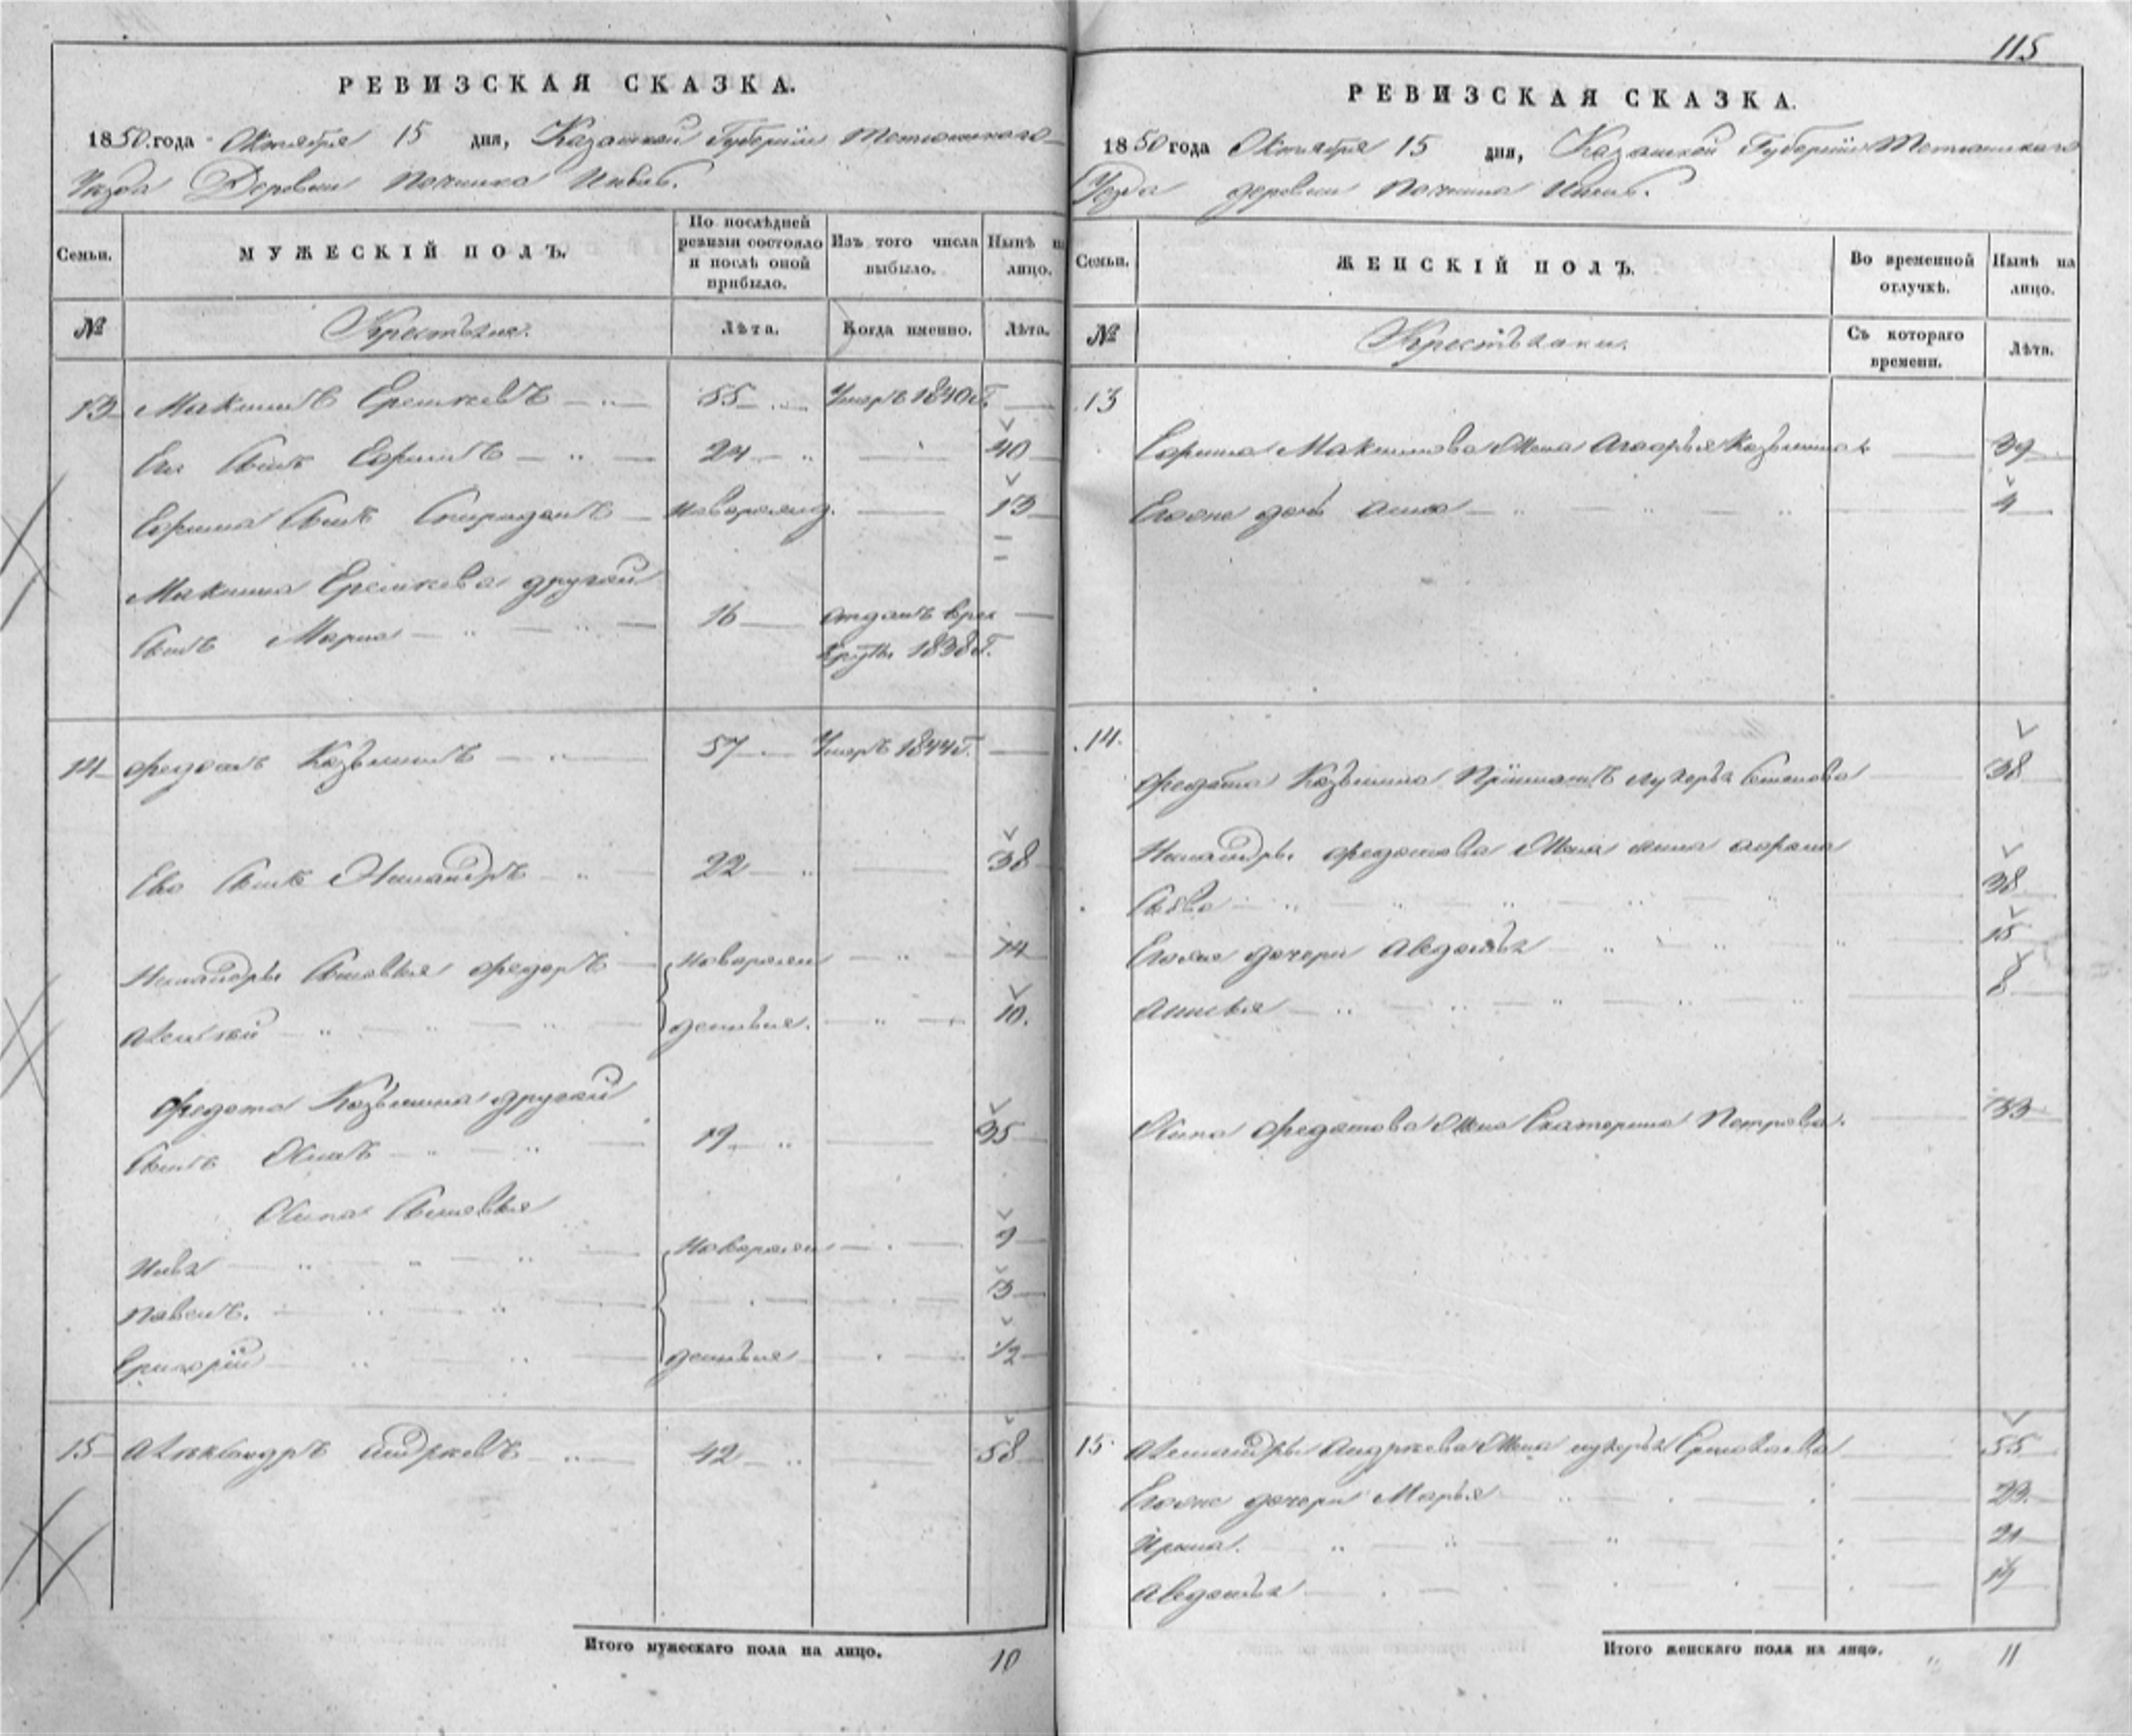 115
РЕВИЗСКАЯ СКАЗКА.
1850. года Октября 15 дня, Казанской Губернiи Тетюшскаго
Уезда Деревни Починка
Семьи.
МУЖЕСКІЙ ПОЛЪ.
По послѣдней ревизіи состояло и послѣ оной прибыло.
Изъ того числа выбыло.
Нынѣ на лицо.
№
Крестьяне.
Лѣта.
Когда именно.
Лѣта.
13 Максимъ 55 Умеръ 1840 г.
Его Сынъ Ефимъ 24 40
Ефима Сынъ Спиридонъ новорожд. 13
Максима другой
Сынъ 16 отданъ врек
руты 1838 г.
14 Федотъ Козьминъ 57 Умеръ 1844 г.
Его Сынъ Никандръ 22 38
Никандры Сыновья Федоръ новорожден 14
Алексѣй денные. 10.
Федота Козьмина другой
Сынъ Осипъ 19 35
Осипа Сыновья
новорожден 9
Павелъ. 3
Григорій денные 1/2
15 Александръ Андреевъ 42 58
Итого мужескаго пола на лицо. 10
РЕВИЗСКАЯ СКАЗКА.
1850 года Октября 15 дня, Казанской Губернiи Тетюшскаго
Уезда деревни Починка
Семьи.
ЖЕНСКІЙ ПОЛЪ.
Во временной отлучкѣ.
Нынѣ на лицо.
№
Крестьянки.
Съ котораго времени.
Лѣта.
13
Ефима Максимова Жена Агафья Козьмина 39
Егоже дочь Анна 4
14.
Федота Козьмина Лукерья Степанова 38
Никандры Федотова Жена
38
Егоже дочери Авдотья 15
8
Осипа Федотова Жена Екатерина Петрова. 33
15 Александры Андреева Жена Лукерья 55
Егоже дочери Марья 23
Ирина. 21
Авдотья
Итого женскаго пола на лицо. 11